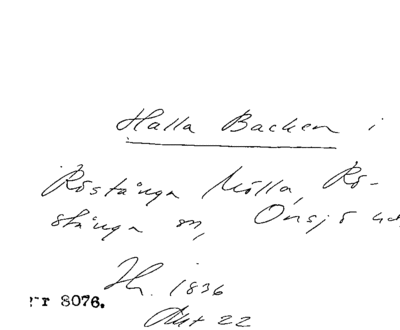 Halla Backen i
Röstånga Mölla, Rö-
stånga sn, Onsjö hd
Th. 1836
Akt 22
nr 8076.